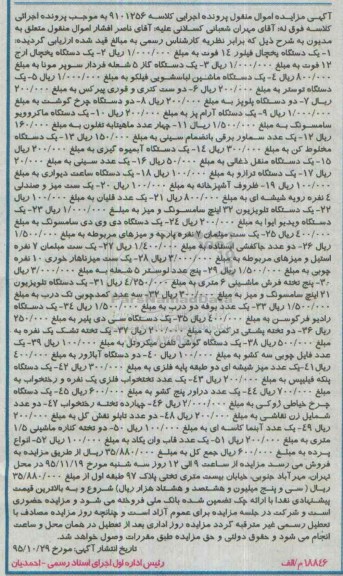 آگهی مزایده اموال منقول پرونده اجرایی کلاسه ۹۱۰۱۲۵۶ به موجب پرونده اجرائی
کلاسه فوق له آقای مهران شعبانی کسلائی علیه: آقای ناصر افشار اموال منقول متعلق به
مدیون به شرح ذیل که برابر نظریه کارشناس رسمی به مبالغ قید شده ارزیابی گردیده:
۱- یک دستگاه یخچال فیلور ۱۴ فوت به مبلغ ۱/۰۰۰/۰۰۰ ریال ۲- یک دستگاه یخچال ارج
۱۲ فوت به مبلغ ۱/۰۰۰/۰۰۰ ریال ۳- یک دستگاه گاز ۵ شعله فردار سوپر مونا به مبلغ
۸۰۰/۰۰۰ ریال ۴- یک دستگاه ماشین لباسشویی فیلکو به مبلغ ۱/۰۰۰/۰۰۰ ریال ۵- یک
دستگاه توستر به مبلغ ۲۰۰/۰۰۰ ریال ۶- دو ست کتری و قوری پیرکس به مبلغ ۲۰۰/۰۰۰
ریال ۷- دو دستگاه پلوپز به مبلغ ۲۰۰/۰۰۰ ریال ۸- دو دستگاه چرخ گوشت به مبلغ
۱/۰۰۰/۰۰۰ ریال ۹- یک دستگاه آرام پز به مبلغ ۲۰۰/۰۰۰ ریال ۱۰- یک دستگاه ماکروویو
سامسونگ به مبلغ ۱/۵۰۰/۰۰۰ ریال ۱۱- چهار عدد ماهیتابه تفلون به مبلغ ۱۶۰/۰۰۰
ریال ۱۲- یک عدد سماور برقی بانضمام سینی به مبلغ ۱۵۰/۰۰۰ ریال ۱۳- یک دستگاه
مخلوط کن به مبلغ ۳۰۰/۰۰۰ ریال ۱۴- یک دستگاه آبمیوه گیری به مبلغ ۲۰۰/۰۰۰ ریال
۱۵- یک دستگاه منقل ذغالی به مبلغ ۵۰/۰۰۰ ریال ۱۶- یک عدد سینی به مبلغ ۲۰/۰۰۰
ریال ۱۷- یک دستگاه ترازو به مبلغ ۱۰۰/۰۰۰ ریال ۱۸- یک دستگاه ساعت دیواری به مبلغ
۱۰۰/۰۰۰ ریال ۱۹- ظروف آشپزخانه به مبلغ ۱۰۰/۰۰۰ ریال ۲۰- یک ست میز و صندلی
۴ نفره رویه شیشه ای به مبلغ ۸۰۰/۰۰۰ ریال ۲۱- یک عدد قلیان به مبلغ ۱۰۰/۰۰۰ ریال
۲۲- یک دستگاه تلویزیون ۳۲ اینچ سامسونگ و میز به مبلغ ۱/۰۰۰/۰۰۰ ریال ۲۳- یک
دستگاه ویدیو ایوا به مبلغ ۲۰۰/۰۰۰ ریال ۲۴- یک دستگاه دی وی دی سامسونگ به مبلغ
۴۰۰/۰۰۰ ریال ۲۵- یک ست مبلمان ۷ نفره پارچه و میزهای مربوطه به مبلغ ۱/۵۰۰/۰۰۰
ریال ۲۶- دو عدد جاکفشی ایستاده به مبلغ ۱/۴۰۰/۰۰۰ ریال ۲۷- یک ست مبلمان ۷ نفره
استیل و میزهای مربوطه به مبلغ ۳/۰۰۰/۰۰۰ ریال ۲۸- یک ست میزناهار خوری ۱۰ نفره
چوبی به مبلغ ۱/۵۰۰/۰۰۰ ریال ۲۹- پنج عدد لوستر ۵ شعله به مبلغ ۳/۰۰۰/۰۰۰ ریال
۳۰- پنج تخته فرش ماشینی ۶ متری به مبلغ ۴/۲۵۰/۰۰۰ ریال ۳۱- یک دستگاه تلویزیون
۲۱ اینچ سامسونگ و میز به مبلغ ۳۰۰/۰۰۰ ریال ۳۲- سه عدد کمدچوبی تک درب به مبلغ
۱/۵۰۰/۰۰۰ ریال ۳۳- یک عدد بوفه دو درب به مبلغ ۱/۵۰۰/۰۰۰ ریال ۳۴- یک دستگاه
رادیو فرکوسن به مبلغ ۴۰۰/۰۰۰ ریال ۳۵- یک دستگاه سی دی پلیر به مبلغ ۲۵۰/۰۰۰
ریال ۳۶- دو تخته پشتی ترکمن به مبلغ ۲۰۰/۰۰۰ ریال ۳۷- یک تخته تشک یک نفره به
مبلغ ۵۰۰/۰۰۰ ریال ۳۸- یک دستگاه گوشی تلفن میکروتل به مبلغ ۱۰۰/۰۰۰ ریال ۳۹- یک
عدد فایل چوبی سه کشو به مبلغ ۱۰۰/۰۰۰ ریال ۴۰- دو دستگاه آباژور به مبلغ ۴۰۰/۰۰۰
ریال ۴۱- یک عدد میز شیشه ای دو طبقه پایه فلزی به مبلغ ۳۰۰/۰۰۰ ریال ۴۲- یک دستگاه
پنکه فیلیپس به مبلغ ۲۰۰/۰۰۰ ریال ۴۳- یک عدد تختخواب فلزی یک نفره و رختخواب به
مبلغ ۲۰۰/۰۰۰ ریال ۴۴- یک عدد دراور پنج کشو به مبلغ ۶۰۰/۰۰۰ ریال ۴۵- یک دستگاه
چرخ خیاطی ژوکی به مبلغ ۲/۰۰۰/۰۰۰ ریال ۴۶- چهارده تخته رختخواب ۴۷- دو عدد
شمایل زن نقاشی به مبلغ ۲۰۰/۰۰۰ ریال ۴۸- دو عدد تابلو نقش گل به مبلغ ۲۰۰/۰۰۰
ریال ۴۹- یک عدد آینما کاسه ای به مبلغ ۱۰۰/۰۰۰ ریال ۵۰- دو تخته کناره ماشینی ۱/۵
متری به مبلغ ۲۰۰/۰۰۰ ریال ۵۱- یک عدد قاب وان یکاد به مبلغ ۱۰۰/۰۰۰ ریال ۵۲- انواع
پرده به مبلغ ۶۰۰/۰۰۰ ریال جمع کل به مبلغ ۳۵/۸۸۰/۰۰۰ ریال از طریق مزایده به
فروش می رسد. مزایده از ساعت ۹ الی ۱۲ روز سه شنبه مورخ ۹۵/۱۱/۱۹ در محل
تهران، مهرآباد جنوبی، خیابان بیست متری تختی پلاک ۹۷ طبقه اول از مبلغ ۳۵/۸۸۰/۰۰۰
ریال (سی و پنج میلیون و هشتصد و هشتاد هزار ریال) شروع و به بالاترین قیمت
پیشنهادی نقداً با ارائه چک تضمین شده بانک ملی فروخته می شود و مزایده حضوری
است و شرکت در جلسه مزایده برای عموم آزاد است و چنانچه روز مزایده مصادف با
تعطیل رسمی غیر مترقبه گردد مزایده روز اداری بعد از تعطیل در همان محل و ساعت
انجام می شود و حقوق دولتی و حق مزایده طبق مقررات وصول خواهد شد.
تاریخ انتشار آگهی: مورخ ۹۵/۱۰/۲۹
۱۸۸۴۶/م/الف رئیس اداره اول اجرای اسناد رسمی - احمدیان